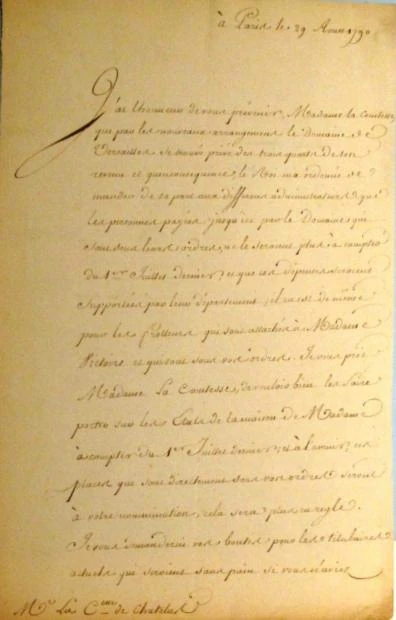 à Paris le 29 Aoust 1790
J'ai l'honneur de vous prévenir, Madame la Comtesse,
que par les nouveaux arrangemens le Domaine de
Versailles se trouve privé des trois quarts de son
revenu et qu'en conséquence, le Roi m'a ordonné de
mander de sa part aux différens administrateurs que
les personnes payées jusqu'ici par le Domaine, qui
sont sous leurs ordres, ne le seroient plus à compter
du 1er Juillet dernier, et que ces dépenses seroient
supportées par leur département; il en est de même
pour les frotteurs qui sont attachés à Madame
Victoire et qui sont sous vos ordres. Je vous prie
Madame La Comtesse, de vouloir bien les faire
porter sur les Etats de la maison de Madame
à compter du 1er Juillet dernier, et à l'avenir, ces
places qui sont directement sous vos ordres seront
à votre nomination, cela sera plus en règle.
Je vous demanderai vos bontés pour les titulaires
actuels qui seroient sans pain si vous n'aviez
Me La Csse de Chatelux